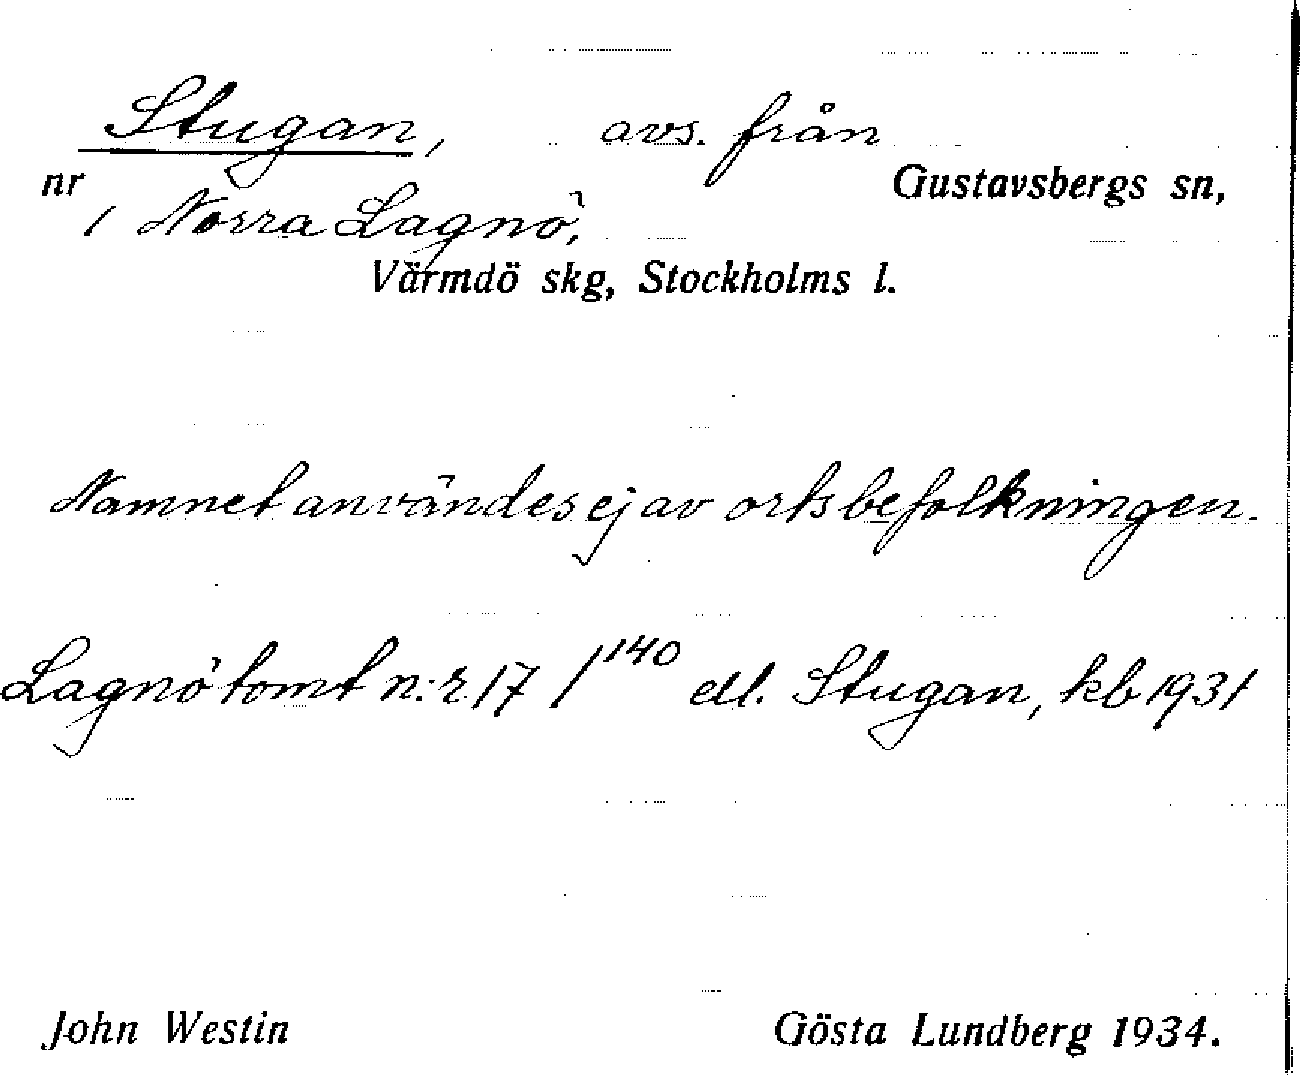 Stugan, avs. från
nr Gustavsbergs sn,
1 Norra Lagnö,
Värmdö skg, Stockholms l.
Namnet användes ej av ortsbefolkningen.
Lagnö tomt n:r 17 /140 ell. Stugan, kb 1931
John Westin Gösta Lundberg 1934.